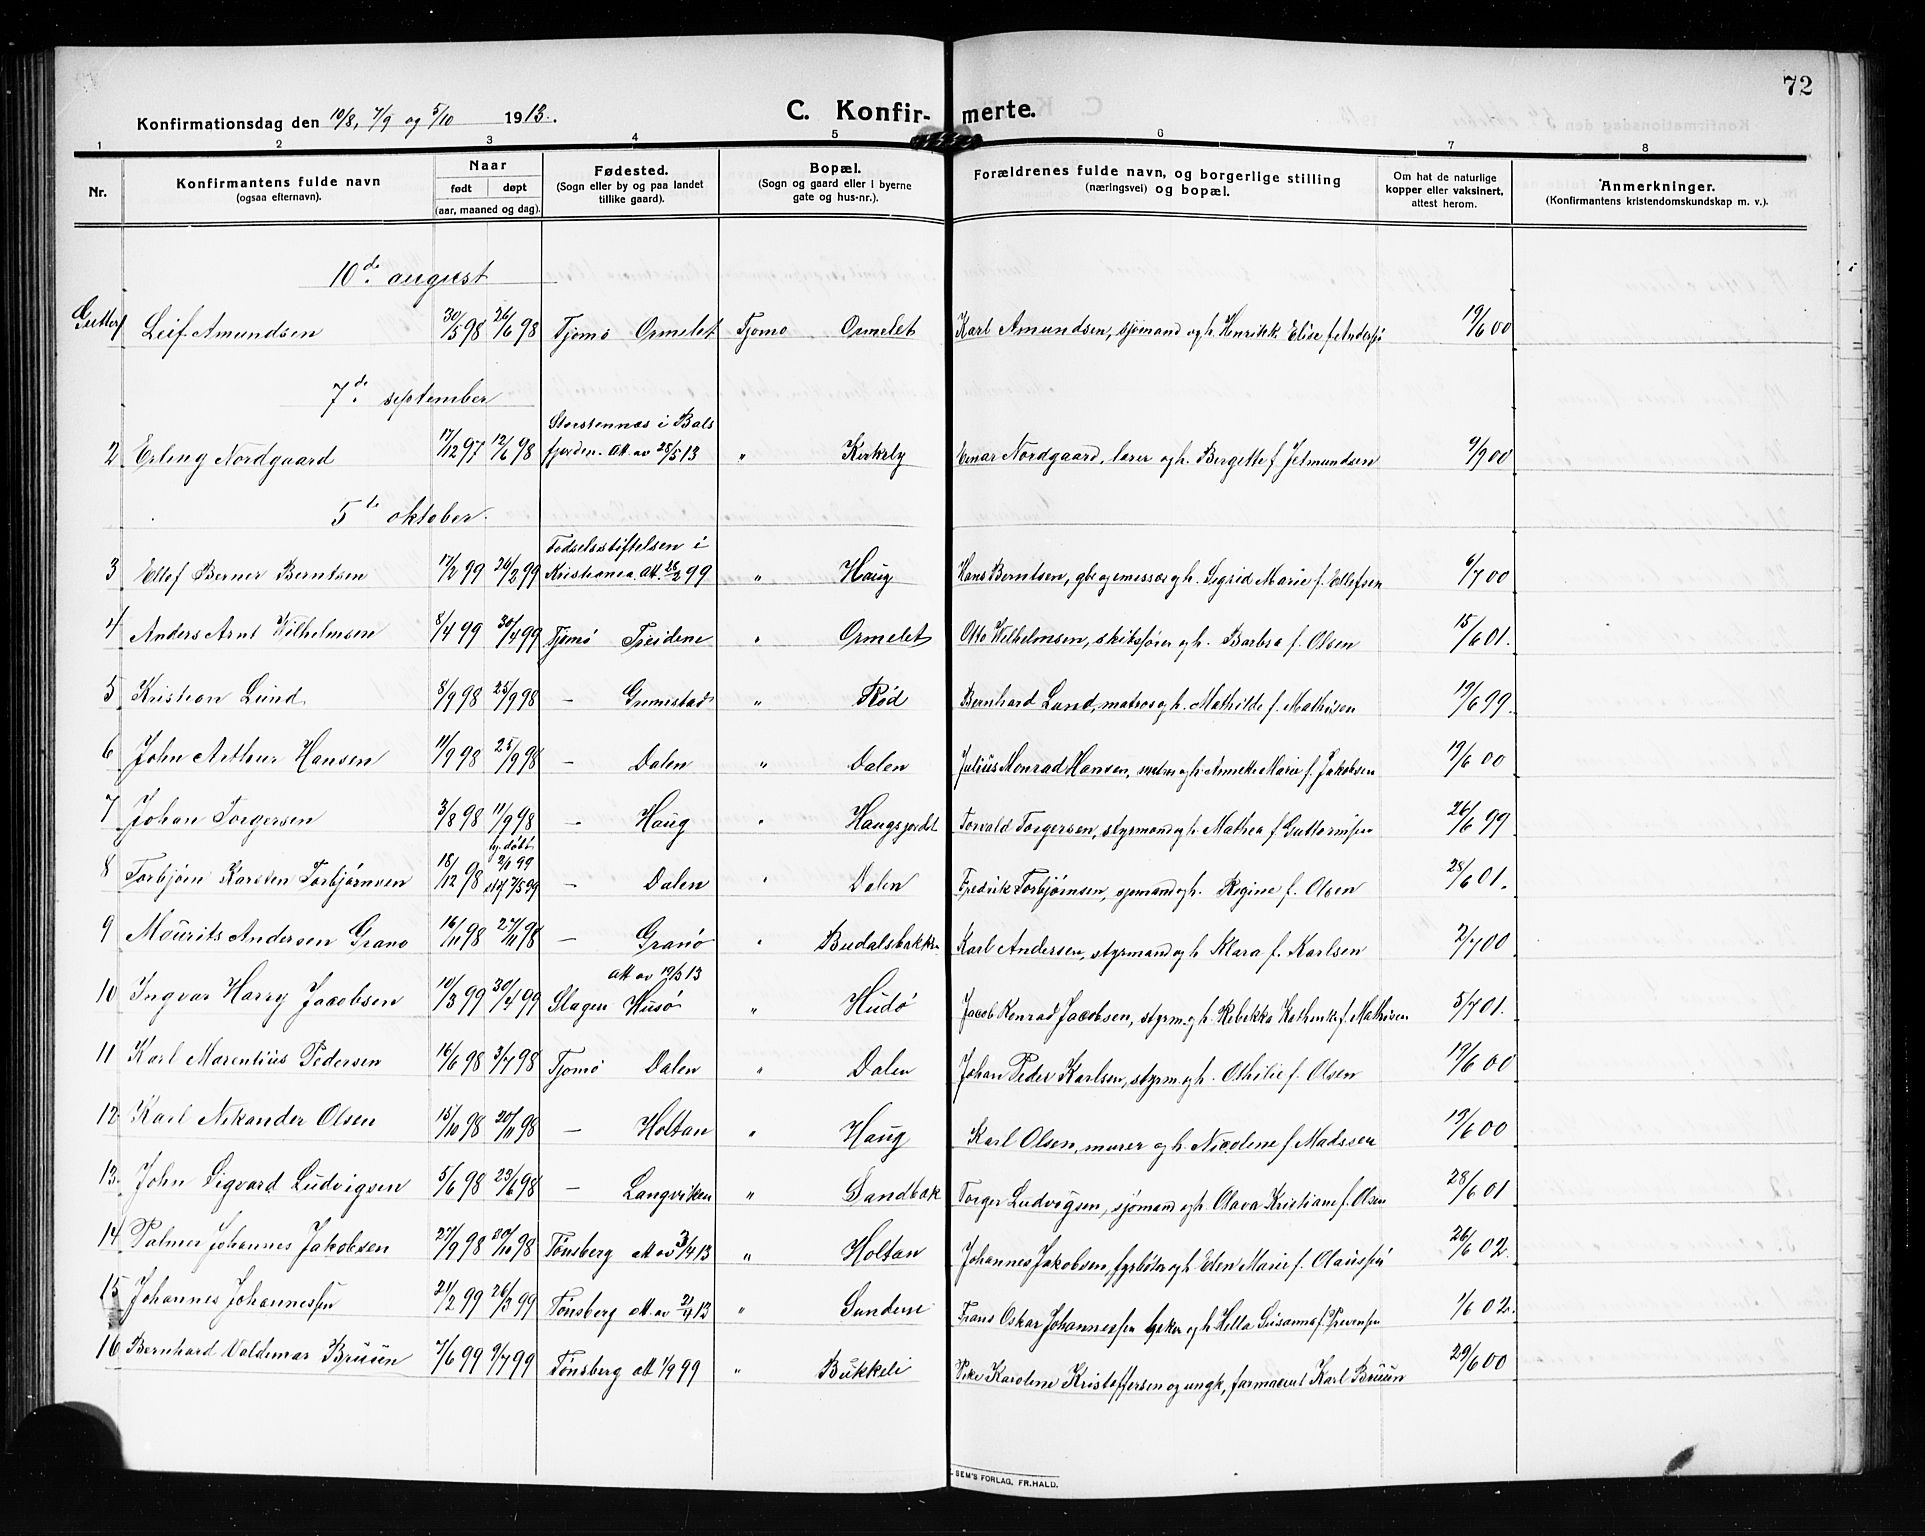 72
Konfirmationsdag den 10/8, 7/9 og 5/10 1913.
C. Konfirmerte.
1 2 3 4 5 6 7 8
Nr.
Konfirmantens fulde navn
(ogsaa efternavn).
Naar
født døpt
(aar, maaned og dag).
Fødested.
(Sogn eller by og paa landet
tillike gaard).
Bopæl.
(Sogn og gaard eller i byerne
gate og hus-nr.).
Forældrenes fulde navn, og borgerlige stilling
(næringsvei) og bopæl.
Om hat de naturlige
kopper eller vaksinert,
attest herom.
Anmerkninger.
(Konfirmantens kristendomskundskap m. v.).
10de august
Gutter
1 Leif Amundsen 30/5 98 26/6 98 Tjømø Ormelet Tjømø Ormelet Karl Amundsen, sjømand og h. Henrikk Elise f. Anders. 19/6 00
7de september
2 Erling Nordgaard 17/12 97 12/6 98 Storstennes i Bals
fjorden. att. av 28/5 13 " Kirkeby Einar Nordgaard, lærer og h. Bergette f. Jetmundsen 9/9 00
5te oktober.
3 Ellef Berner Berntsen 17/2 99 26/2 99 Fødselsstiftelsen i
Kristiania. att. 26/2 99 " Haug Hans Berntsen, og h. Sigrid Marie f. Ellefsen 6/7 00
4 Anders Arnt Wilhelmsen 8/4 99 30/4 99 Tjømø Treidene " Ormelet Otto Wilhelmsen, skibsfører og h. Barbra f. Olsen 15/6 01.
5 Kristian Lund 8/9 98 25/9 98 — Grimestad " Rød Bernhard Lund, matros og h. Mathilde f. Mathisen 19/6 99.
6 John Arthur Hansen 11/9 98 25/9 98 — Dalen " Dalen Julius Monrad Hansen, og h. Annette Marie f. Jakobsen 19/6 00
7 Johan Torgersen 3/8 98 11/9 98 — Haug " Haugsjordet Torvald Torgersen, styrmand og h. Mathea f. Guttormsen 26/6 99
8 Torbjørn Karsten Torbjørnsen 18/12 98 hj. døbt
2/1 99
stf 7/5 99 — Dalen " Dalen Fredrik Torbjørnsen, sjømand og h. Regine f. Olsen 28/6 01.
9 Mourits Andersen Granø 16/11 98 27/11 98 — Granø " Budalsbakken Karl Andersen, styrmand og h. Klara f. Karlsen 2/7 00
10 Ingvar Harry Jacobsen 10/3 99 30/4 99 att av 19/3 13
Slagen Husø " Hudø Jacob Konrad Jacobsen, styrm. og h. Rebekka Kathinka f. Mathisen 5/7 01.
11 Karl Marentius Pedersen 16/6 98 3/7 98 Tjømø Dalen " Dalen Johan Peder Karlsen, styrm. og h. Othilie f. Olsen 19/6 00
12 Karl Nikander Olsen 15/10 98 20/11 98 — Holtan " Haug Karl Olsen, murer og h. Nicoline f. Madssen 19/6 00
13. John Sigvard Ludvigsen 5/6 98 23/6 98 — Langviken " Sandbæk Torger Ludvigsen, sjømand og h. Olava Kristiane f. Olsen 28/6 01
14 Palmer Johannes Jakobsen 27/9 98 30/10 98 Tønsberg att av 3/4 13 " Holtan Johannes Jakobsen, fyrbøter og h. Elen Marie f. Olaussen 26/6 02.
15 Johannes Johannessen 21/2 99 26/3 99 Tønsberg att. av 2/4 13 " Sandene Frans Oskar Johannessen, og h. Hella Susanna f. Svensen 1/6 02.
16 Bernhard Valdemar Bruun 7/6 99 9/7 99 Tønsberg att 1/9 99 " Bukkeli Vike Karoline Kristoffersen og ungk, farmaceut Karl Bruun 29/6 00
SEM'S FORLAG, FR.HALD.